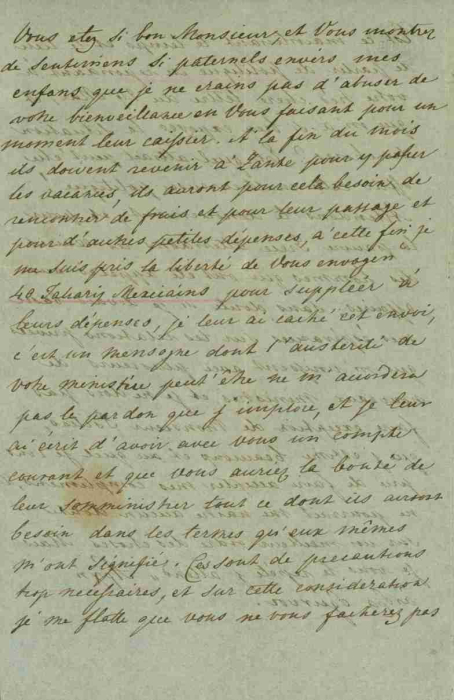 Vous etez si bon Monsieur, et Vous montrez
de sentimens si paternels envers mes
enfans que je ne crains pas d'abuser de
votre bienveillance en Vous faisant pour un
moment leur caissier. A la fin du mois
ils doivent revenir à Zante pour y passer
les vacances, ils auront pour cela besoin de
rencontrer de frais et pour leur passage et
pour d'autres petites dépenses, à cette fin je
me suis pris la liberté de Vous envoyer
40 Talaris Mexicains pour suppléer à
leurs dépenses, je leur ai caché cet envoi,
c'est un mensogne dont l'austerité de
votre ministère peut'etre ne m'acordera
pas le pardon que j'implore, et je leur
ai écrit d'avoir avec vous un compte
courant et que vous auriez la bonté de
leur somministrer tout ce dont ils auront
besoin dans les termes qu'eux mêmes
m'ont signifiés. Ces sont de precautions
trop necessaires, et sur cette consideration
je me flatte que vous ne vous facherez pas